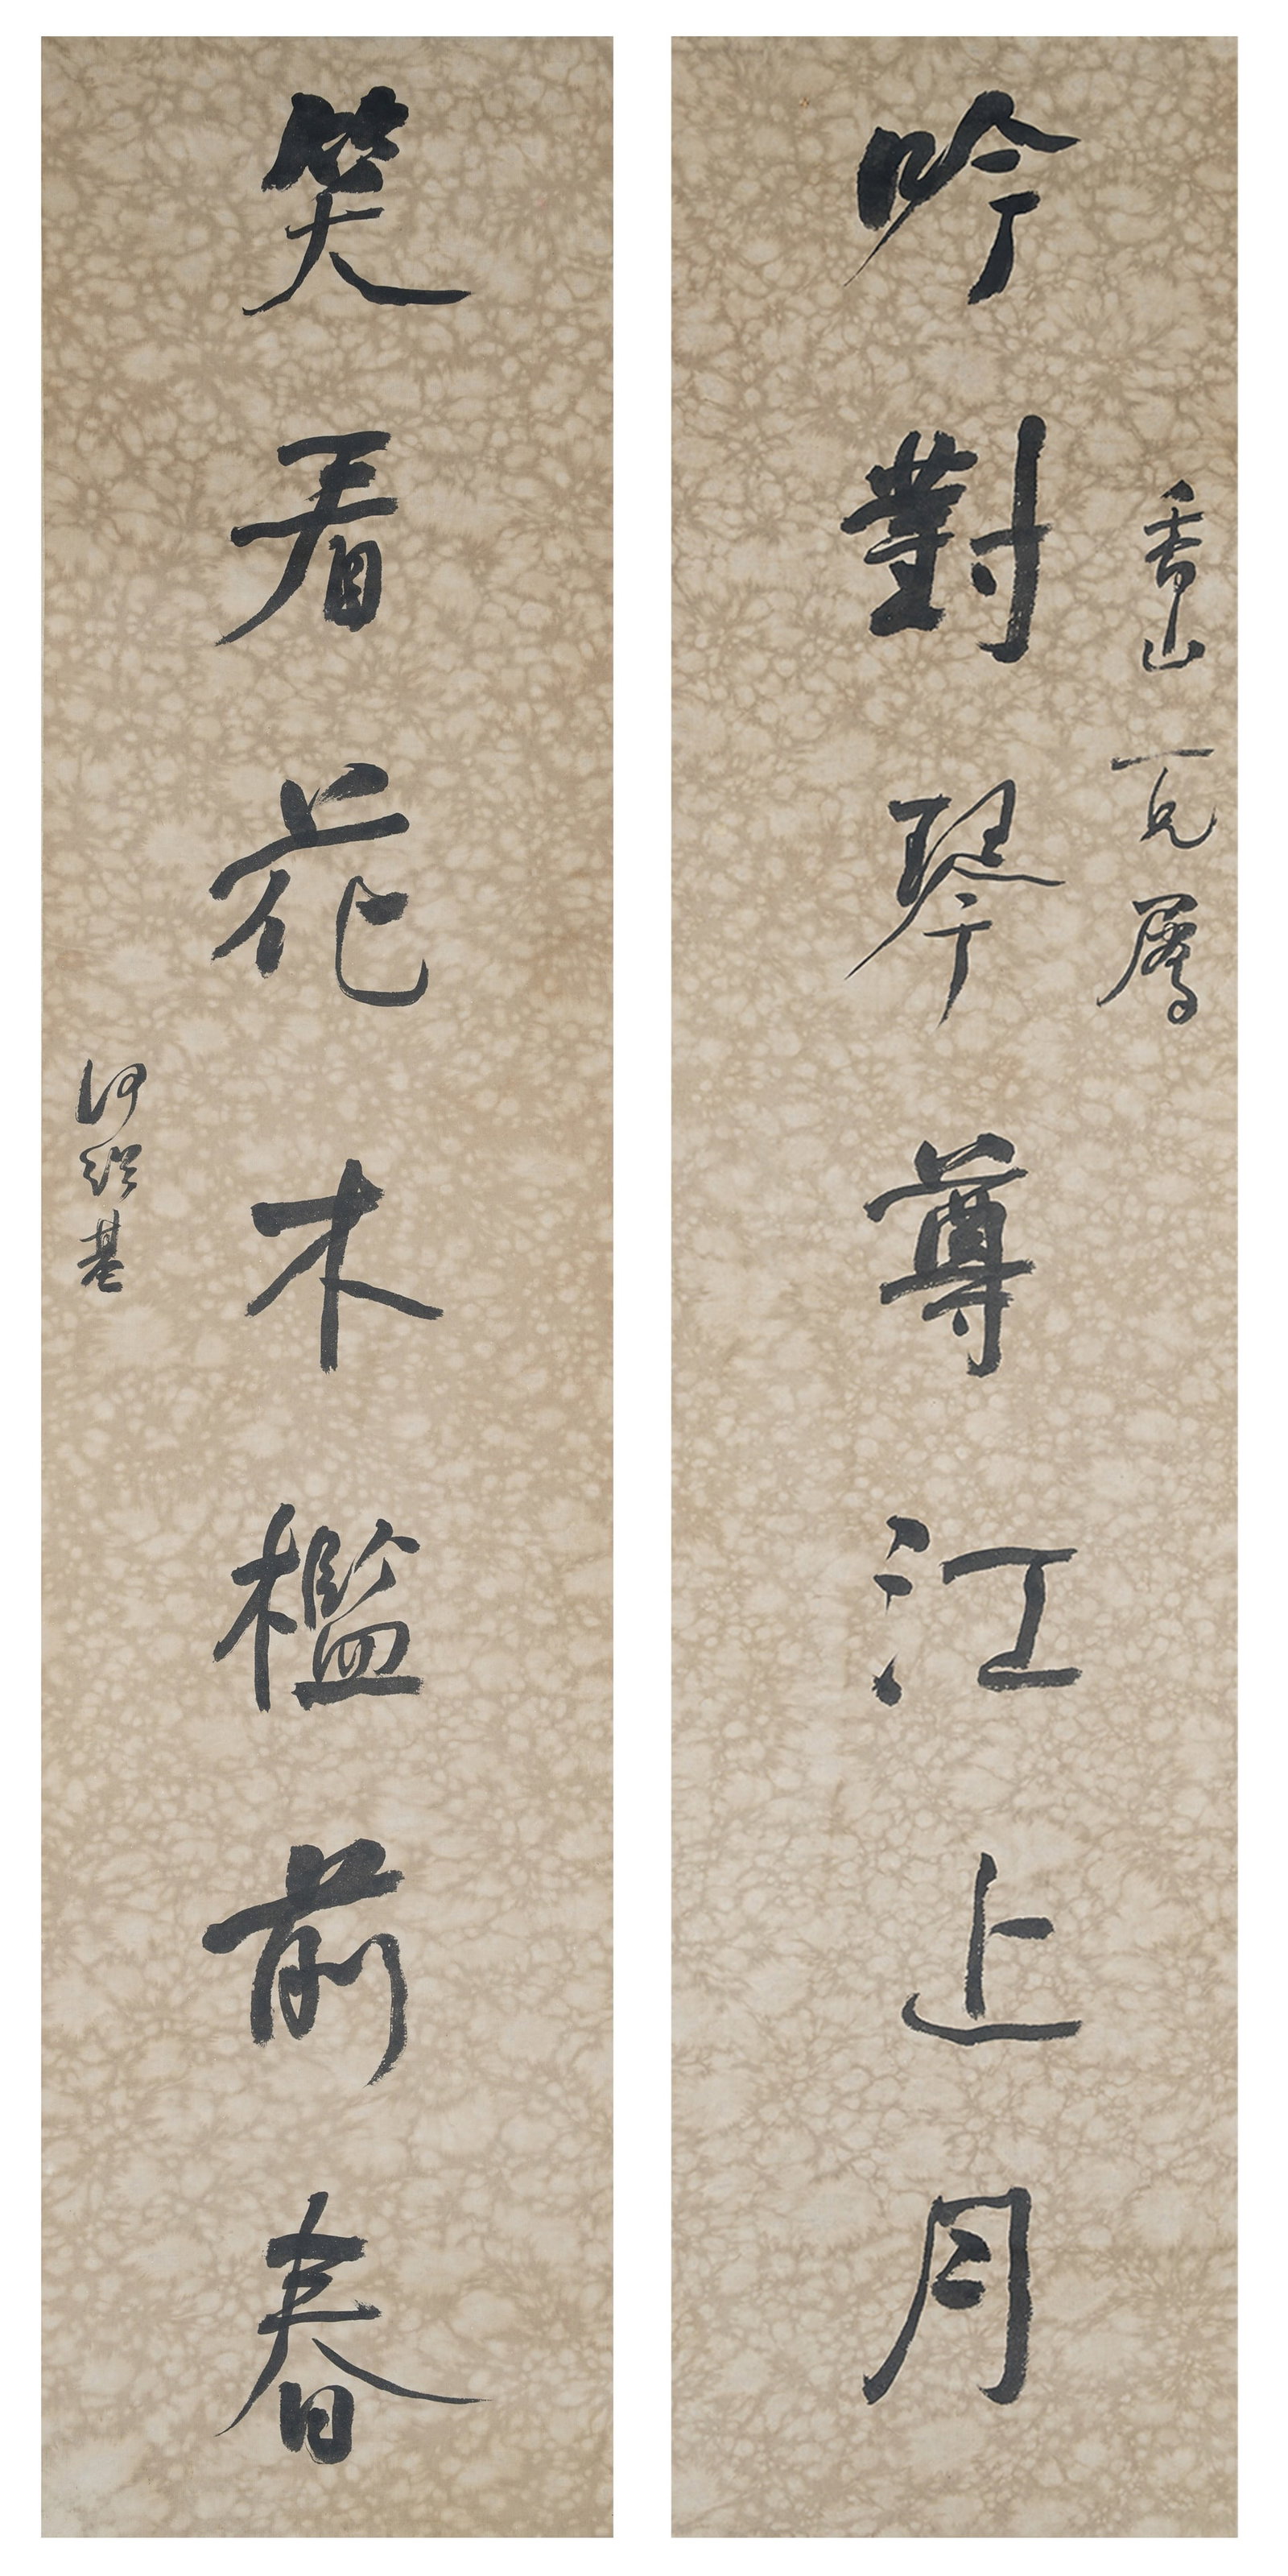 香山兄屬
吟對琴尊江上月
笑看花木檻前春
何紹基